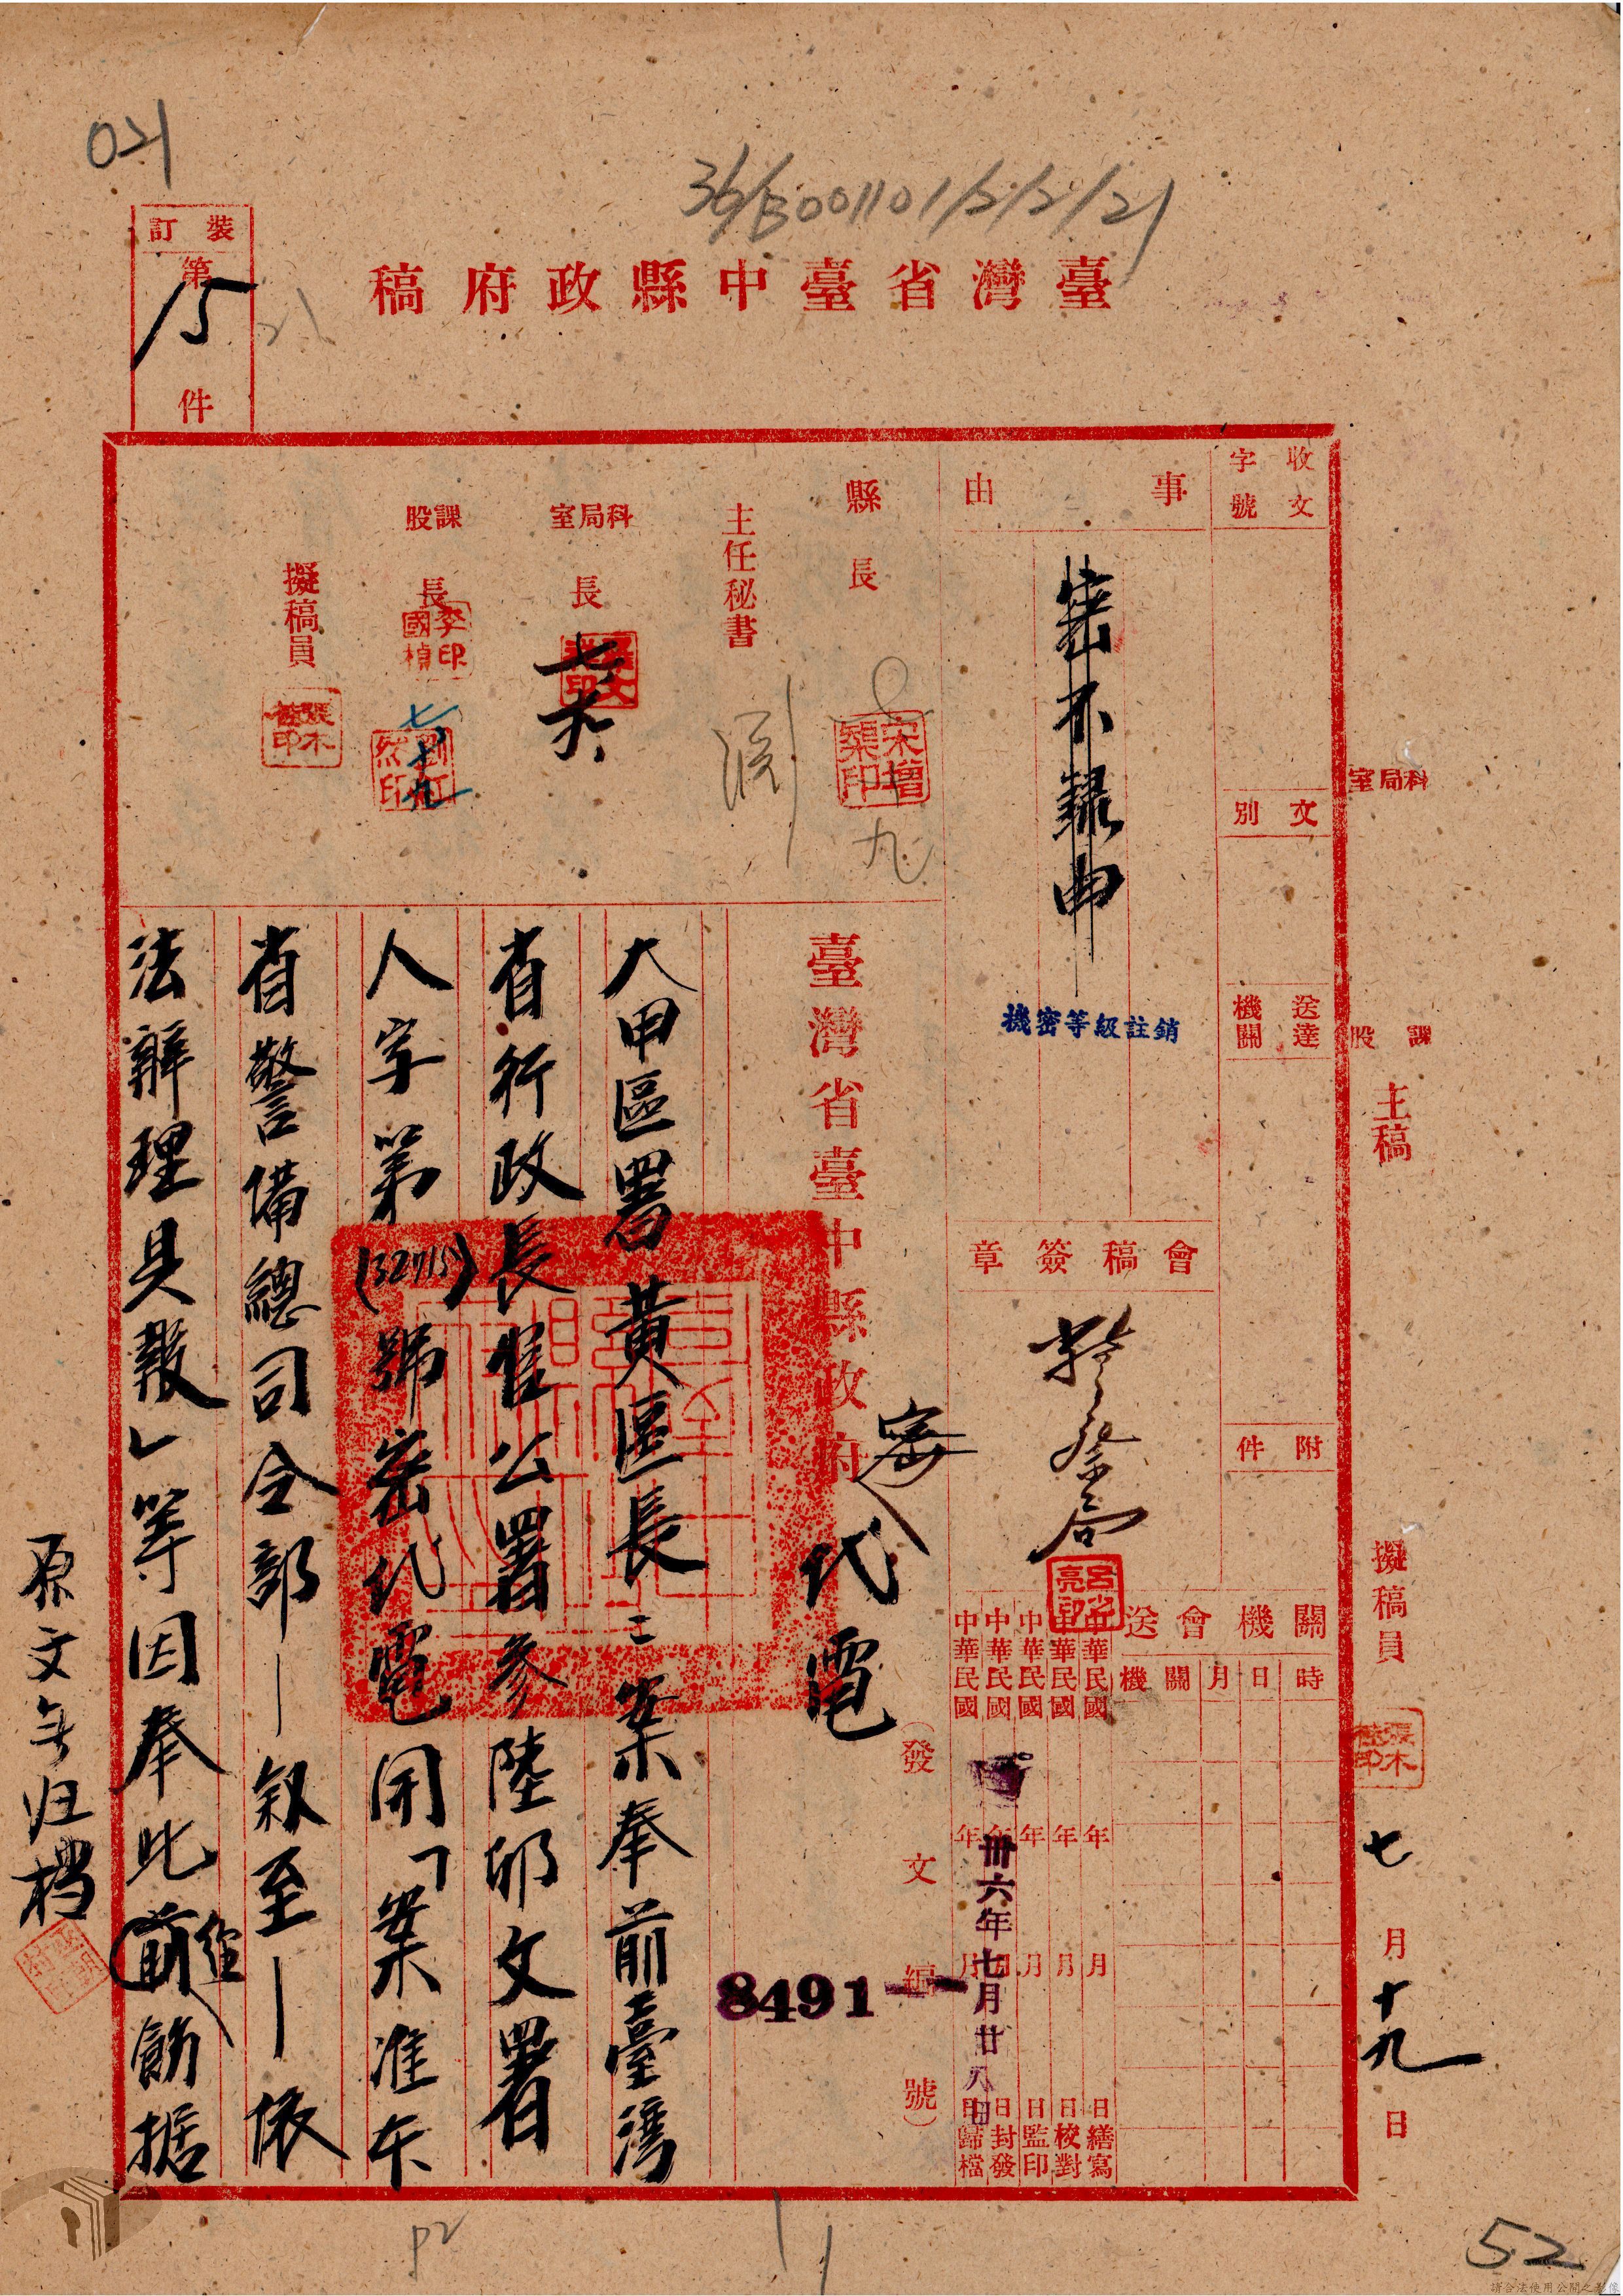 021
36/B001101/2/2/21
裝訂
第
15
件
21
臺灣省臺中縣政府稿
收文
字號
文別
送達
機關
附件
事由
密不錄由
機密等級註銷
會稿簽章
警察局
縣長
宋增榘印
九
主任秘書
科局室
長
課股
長
李國楨印
七十九
擬稿員
張木
印
科局室
課股
主稿
擬稿員
張木
印
七月十九日
關機會送
時日月關機
中華民國 年 月 日繕寫
中華民國 年 月 日校對
中華民國 年 月 日監印
中華民國 年 月 日封發
中華民國 年 月 日歸檔
卅六年七月廿八日
(發文編號)
8491
臺灣省臺中縣政府
密
代電
大甲區署黃區長:案奉前臺灣
省行政長官公署參陸卯文署
人字第(32715)號密代電開「案准本
省警備總司令部—敘至—依
法辦理具報」等因奉此前經飭据
原文年归档
P2
52
請合法使用公開之影像